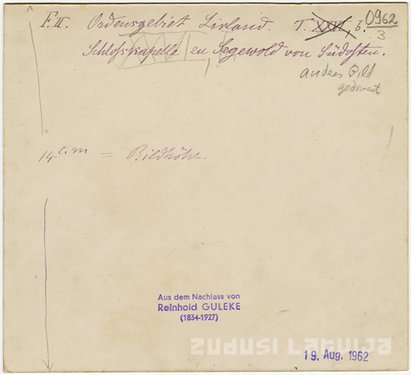 F. II. Ordensgebiet Livland. T. XXVI, 6. 0962
3
Schlosskapelle en Segewold von Südosten.
andres Bild
gedruckt
14 c.m = Bildhöhe.
Aus dem Nachlass von
Reinhold GULEKE
(1834-1927)
ZUDUSI LATVIJA
19. Aug. 1962